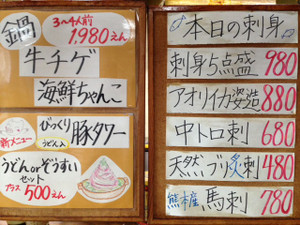 鍋 3~4人前
1980えん
牛チゲ
海鮮ちゃんこ
新メニュー
びっくり
うどん入
豚タワー
うどんorぞうすい
セット
プラス 500えん
本日の刺身
刺身5点盛 980
アオリイカ姿造 880
中トロ刺 680
天然ブリ炙刺 480
熊本産 馬刺 780